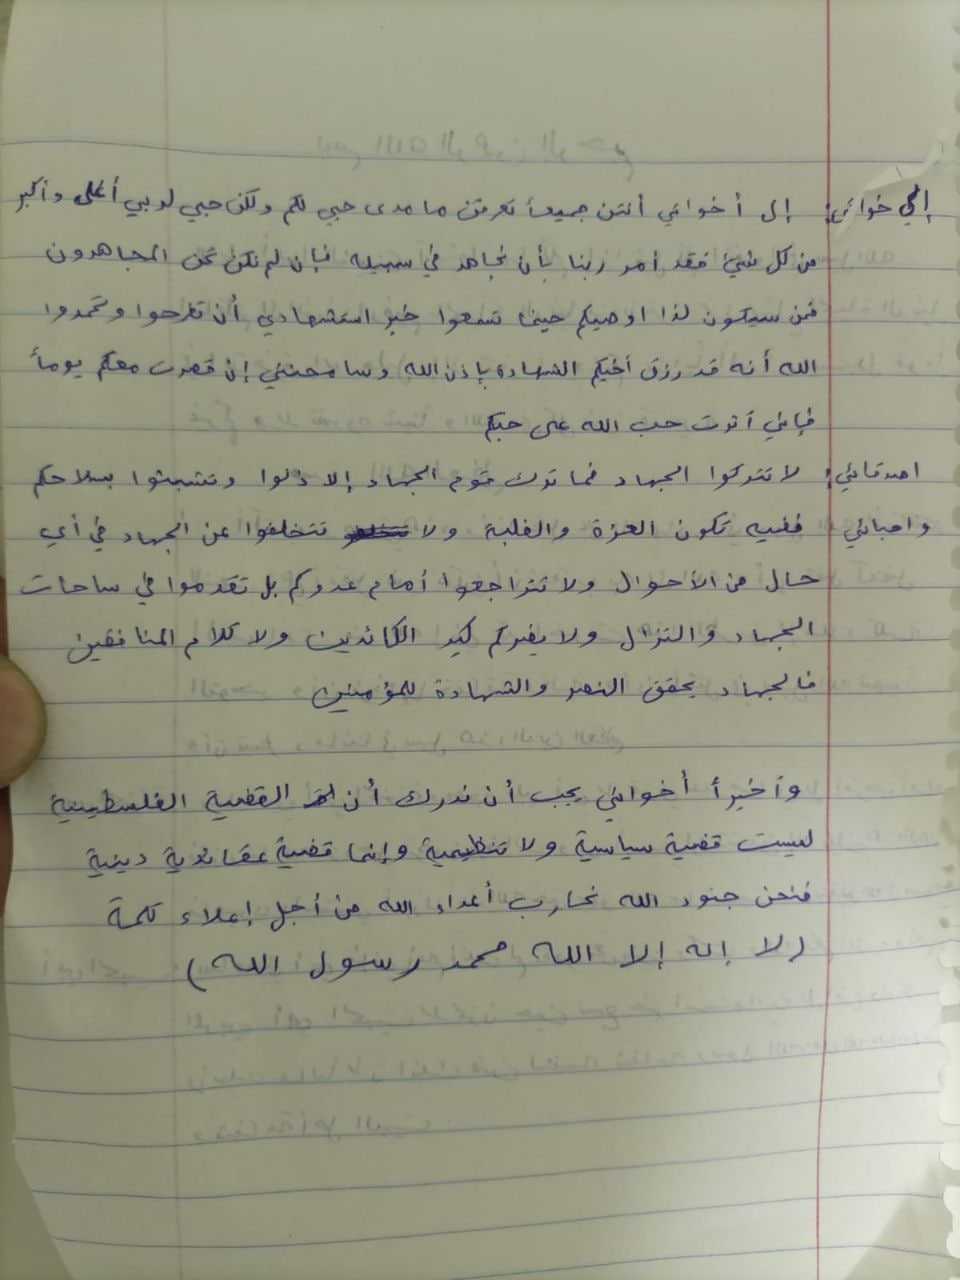 إلى خواتي: إلى أخواتي أنتن جميعاً تعرفن ما مدى حبي لكم ولكن حبي لربي أغلى وأكبر
من كل شيء فقد أمر ربنا بأن نجاهد في سبيله فإن لم نكن نحن المجاهدون
فمن سيكون لذا اوصيكم حينما تسمعوا خبر استشهادي أن تفرحوا وتحمدوا
الله أنه قد رزق أخيكم الشهادة بإذن الله وسامحنني إن قصرت معكم يوماً
فإنني آثرت حب الله على حبكم
اصدقائي: لا تتركوا الجهاد فما ترك قوم الجهاد إلا ذلوا وتشبثوا بسلاحكم
واحبائي ففيه تكون العزة والغلبة ولا تتخلفوا عن الجهاد في أي
حال من الأحوال ولا تتراجعوا أمام عدوكم بل تقدموا في ساحات
الجهاد والنزال ولا يغركم كيد الكائدين ولا كلام المنافقين
فالجهاد يحقق النصر والشهادة للمؤمنين
وأخيراً أخواني يجب أن ندرك أن القضية الفلسطينية
ليست قضية سياسية ولا تنظيمية وإنما قضية عقائدية دينية
فنحن جنود الله نحارب أعداء الله من أجل إعلاء كلمة
(لا إله إلا الله محمد رسول الله)